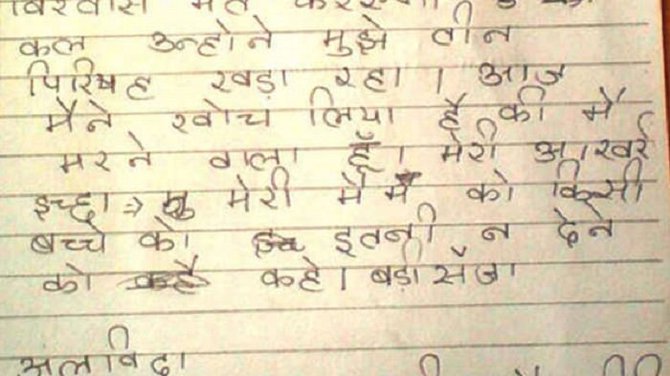 विश्वास मत
कल उन्होने मुझे तीन
पिरियह खड़ा रहा। आज
मैने खोच लिया है की मै
मरने वाला हूँ। मेरी आखर्र
इच्छा → मेरी मैम को किसी
बच्चे को इतनी न देने
को कहे। बड़ी सँजा
अलविदा